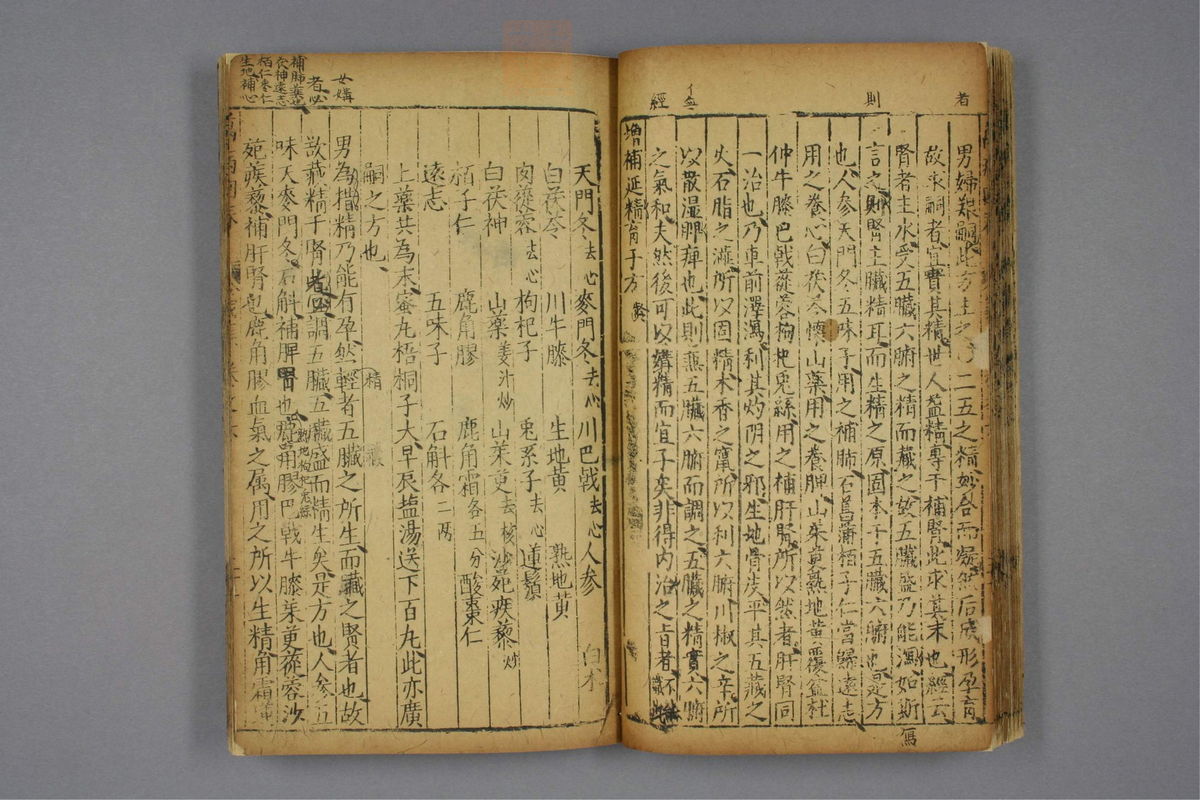 者
則
經
男婦艱嗣此方主之二五之精妙合而凝然后成形孕育
故求嗣者宜實其精世人益精專于補腎此求其末也經云
腎者主水受五臟六腑之精而藏之故五臟盛乃能瀉如斯
言之則腎主臟精耳而生精之原固本于五臟六腑也是方
也人參天門冬五味子用之補肺石菖蒲栢子仁當歸遠志
用之養心白茯苓懷山藥用之養脾山茱萸熟地黃覆盆杜
仲牛膝巴戟蓯蓉枸杞兎絲用之補肝腎所以然者肝腎同
一治也乃車前澤瀉利其灼阴之邪生地骨皮平其五藏之
火石脂之澁所以固精木香之竄所以利六腑川椒之辛所
以散湿脾痺也此則燕五臟六腑而調之五臟之精實六腑
之氣和夫然後可以媾精而宜子矣非得内治之旨者不
增補延精育子方
天門冬去心 麥門冬去心 川巴戟去心 人參 白术
白茯苓 川牛膝 生地黃 熟地黄
肉蓯蓉去心 枸杞子 兎系子去心 連鬚
白茯神 山藥姜汁炒 山茱萸去核 沙苑疾藜炒
栢子仁 鹿角膠 鹿角霜各五分 酸棗仁
遠志 五味子 石斛各二两
上藥共為末蜜丸梧桐子大早辰盐湯送下百丸此亦廣
嗣之方也
男為搆精乃能有孕然輕者五臟之所生而藏之賢者也故
欲藏精于腎者必調五臟五臟盛而精生矣是方也人參五
味天麥門冬石斛補脾胃也鹿角膠巴戟牛膝茱萸蓯蓉沙
熟地枸杞兎絲
苑蒺藜補肝腎也鹿角膠血氣之属用之所以生精角霜
女媾
者必
補肺藥
茯神遠志
栢仁棗仁
生地補心